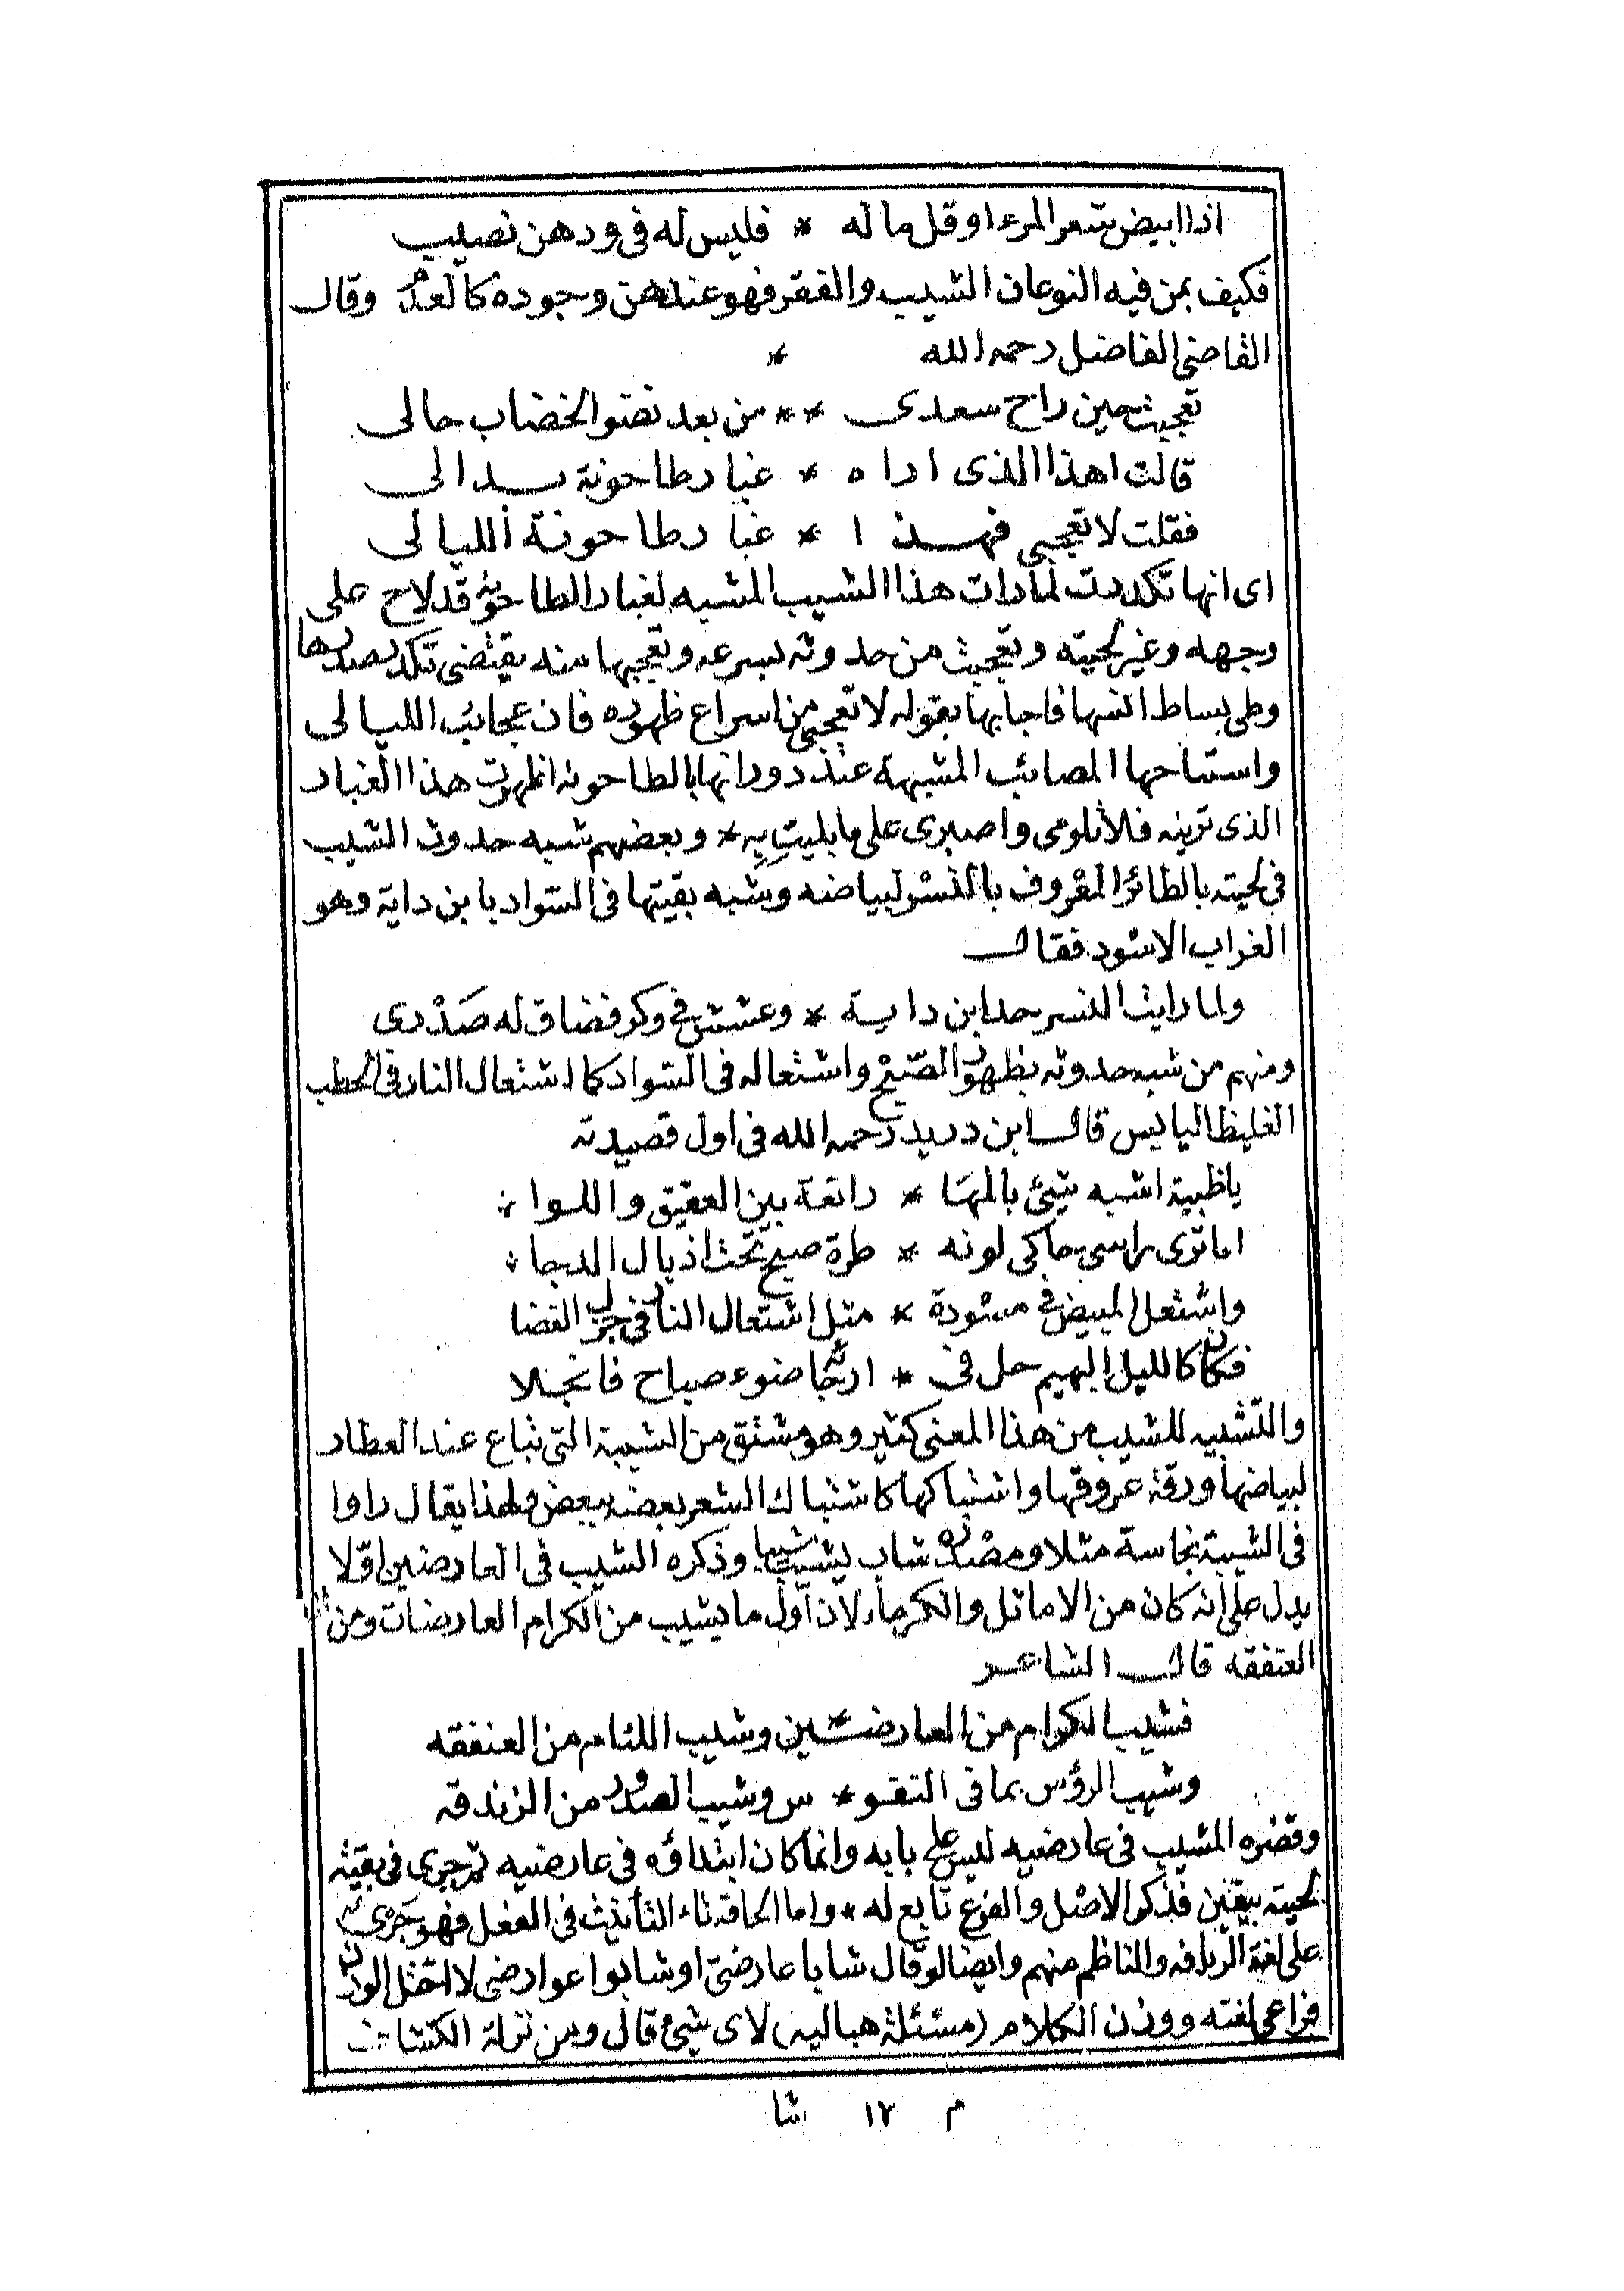 اذا ابيض شعر المرء او قل ماله * فليس له فى ودهن نصيب
فكيف بمن فيه النوعان الشيب والفقر فهو عندهن وجوده كالعدم وقال
القاضى الفاضل رحمه الله *
تعجبت حين راح سعدى ** من بعد نضو الخضاب حالى
قالت اهذا الذى اراه * غبار طاحونة بدالى
فقلت لا تعجبى فهذا * غبار طاحونة الليالى
اى انها تكدرت لما رات هذا الشيب المشبه لغبار الطاحونه قد لاح على
وجهه وغير لحيته وتعجبت من حدوثه بسرعه وتعجبها منه يقتضى تكدر صدرها
وطى بساط انسها فاجابها بقوله لا تعجبى من اسراع ظهوره فان عجائب الليالى
واستناحها المصائب المشبهة عند دورانها بالطاحونه اظهرت هذا الغبار
الذى ترينه فلا تلومى واصبرى على ما بليت به * وبعضهم شبه حدوث الشيب
فى لحيته بالطائر المعروف بالنسر لبياضه وشبه بقيتها فى السواد بابن داية وهو
الغراب الاسود فقال
ولما رايت النسر حدابن داية * وعشش فى وكر فضاق له صدرى
ومنهم من شبه حدوثه بظهور الصبح واشتعاله فى السواد كاشتعال النار فى الحطب
الغليظ اليابس قال ابن دريد رحمه الله فى اول قصيدته
ياظبية اشبه شئ بالمها * راتعة بين العقيق واللوا
اما ترى راسى حاكى لونه * طرة صبح تحت اذيال الدجا
واشتعل المبيض فى مسودة * مثل اشتعال النار فى جزل الغضا
فكان كالليل البهيم حل فى * ارجائه ضوء صباح فانجلا
والتشبيه للشيب من هذا المعنى كثير وهو مشتق من الشيبة التى تباع عند العطار
لبياضها ورقة عروقها واشتباكها كاشتباك الشعر بعضه ببعض ولهذا يقال راوا
فى الشيبة نجاسة مثلا ومصدره شاب يشيب شيبا وذكره الشيب فى العارضين اولا
يدل على انه كان من الاماثل والكرماء لان اول ما يشيب من الكرام العارضات ومن
العنفقه قال الشاعر
فشيب الكرام من العارضـ*ـين وشيب اللئام من العنفقه
وشيب الرؤس بما فى النفو * س وشيب الصدور من الزندقه
وقصره المشيب فى عارضيه ليس على بابه وانما كان ابتداؤه فى عارضيه ثم جرى فى بقية
لحيته بيقين فذكر الاصل والفرع تابع له * واما الحاقه تاء التأنيث فى الفعل فهو جرى منه
على لغة الريافه والناظم منهم وايضا لو قال شابا عارضى او شابوا عوارضى لا اختل الوزن
فراعى لغته ووزن الكلام (مسئلة هباليه) لاى شئ قال ومن نزلة الكشاف
م ١٢ ثا